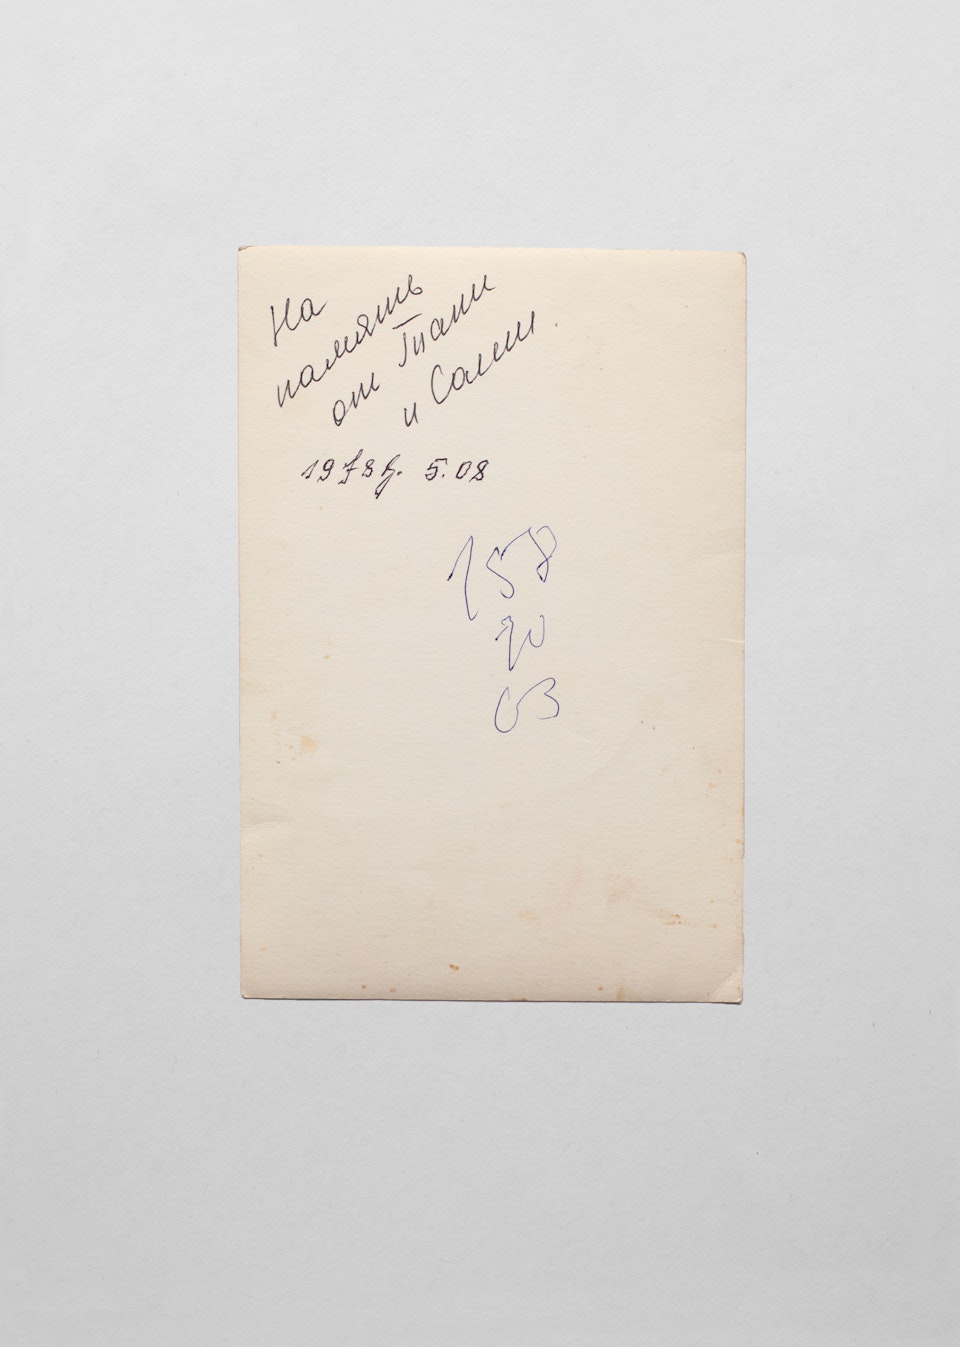 На
память
от Тани
и Саши.
1978г. 5.08
158
70
63